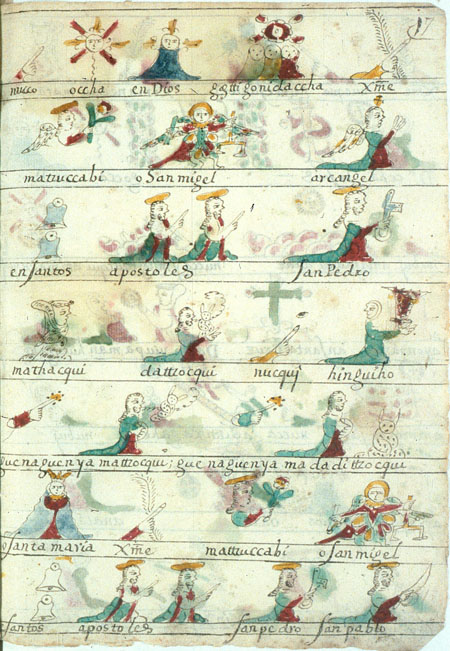 nucco occha en Dios gattigonidaccha Xm̃e
matzuccabi o San migel arcangel
en santos apostoles san Pedro
mathacqui dattzocqui nucquj hinguiho
guenaguenya mattzocqui; guenaguenya ma dadittzocqui
o santa maria Xm̃e mattzuccabi o San migel
santos apostoles san pedro san pablo